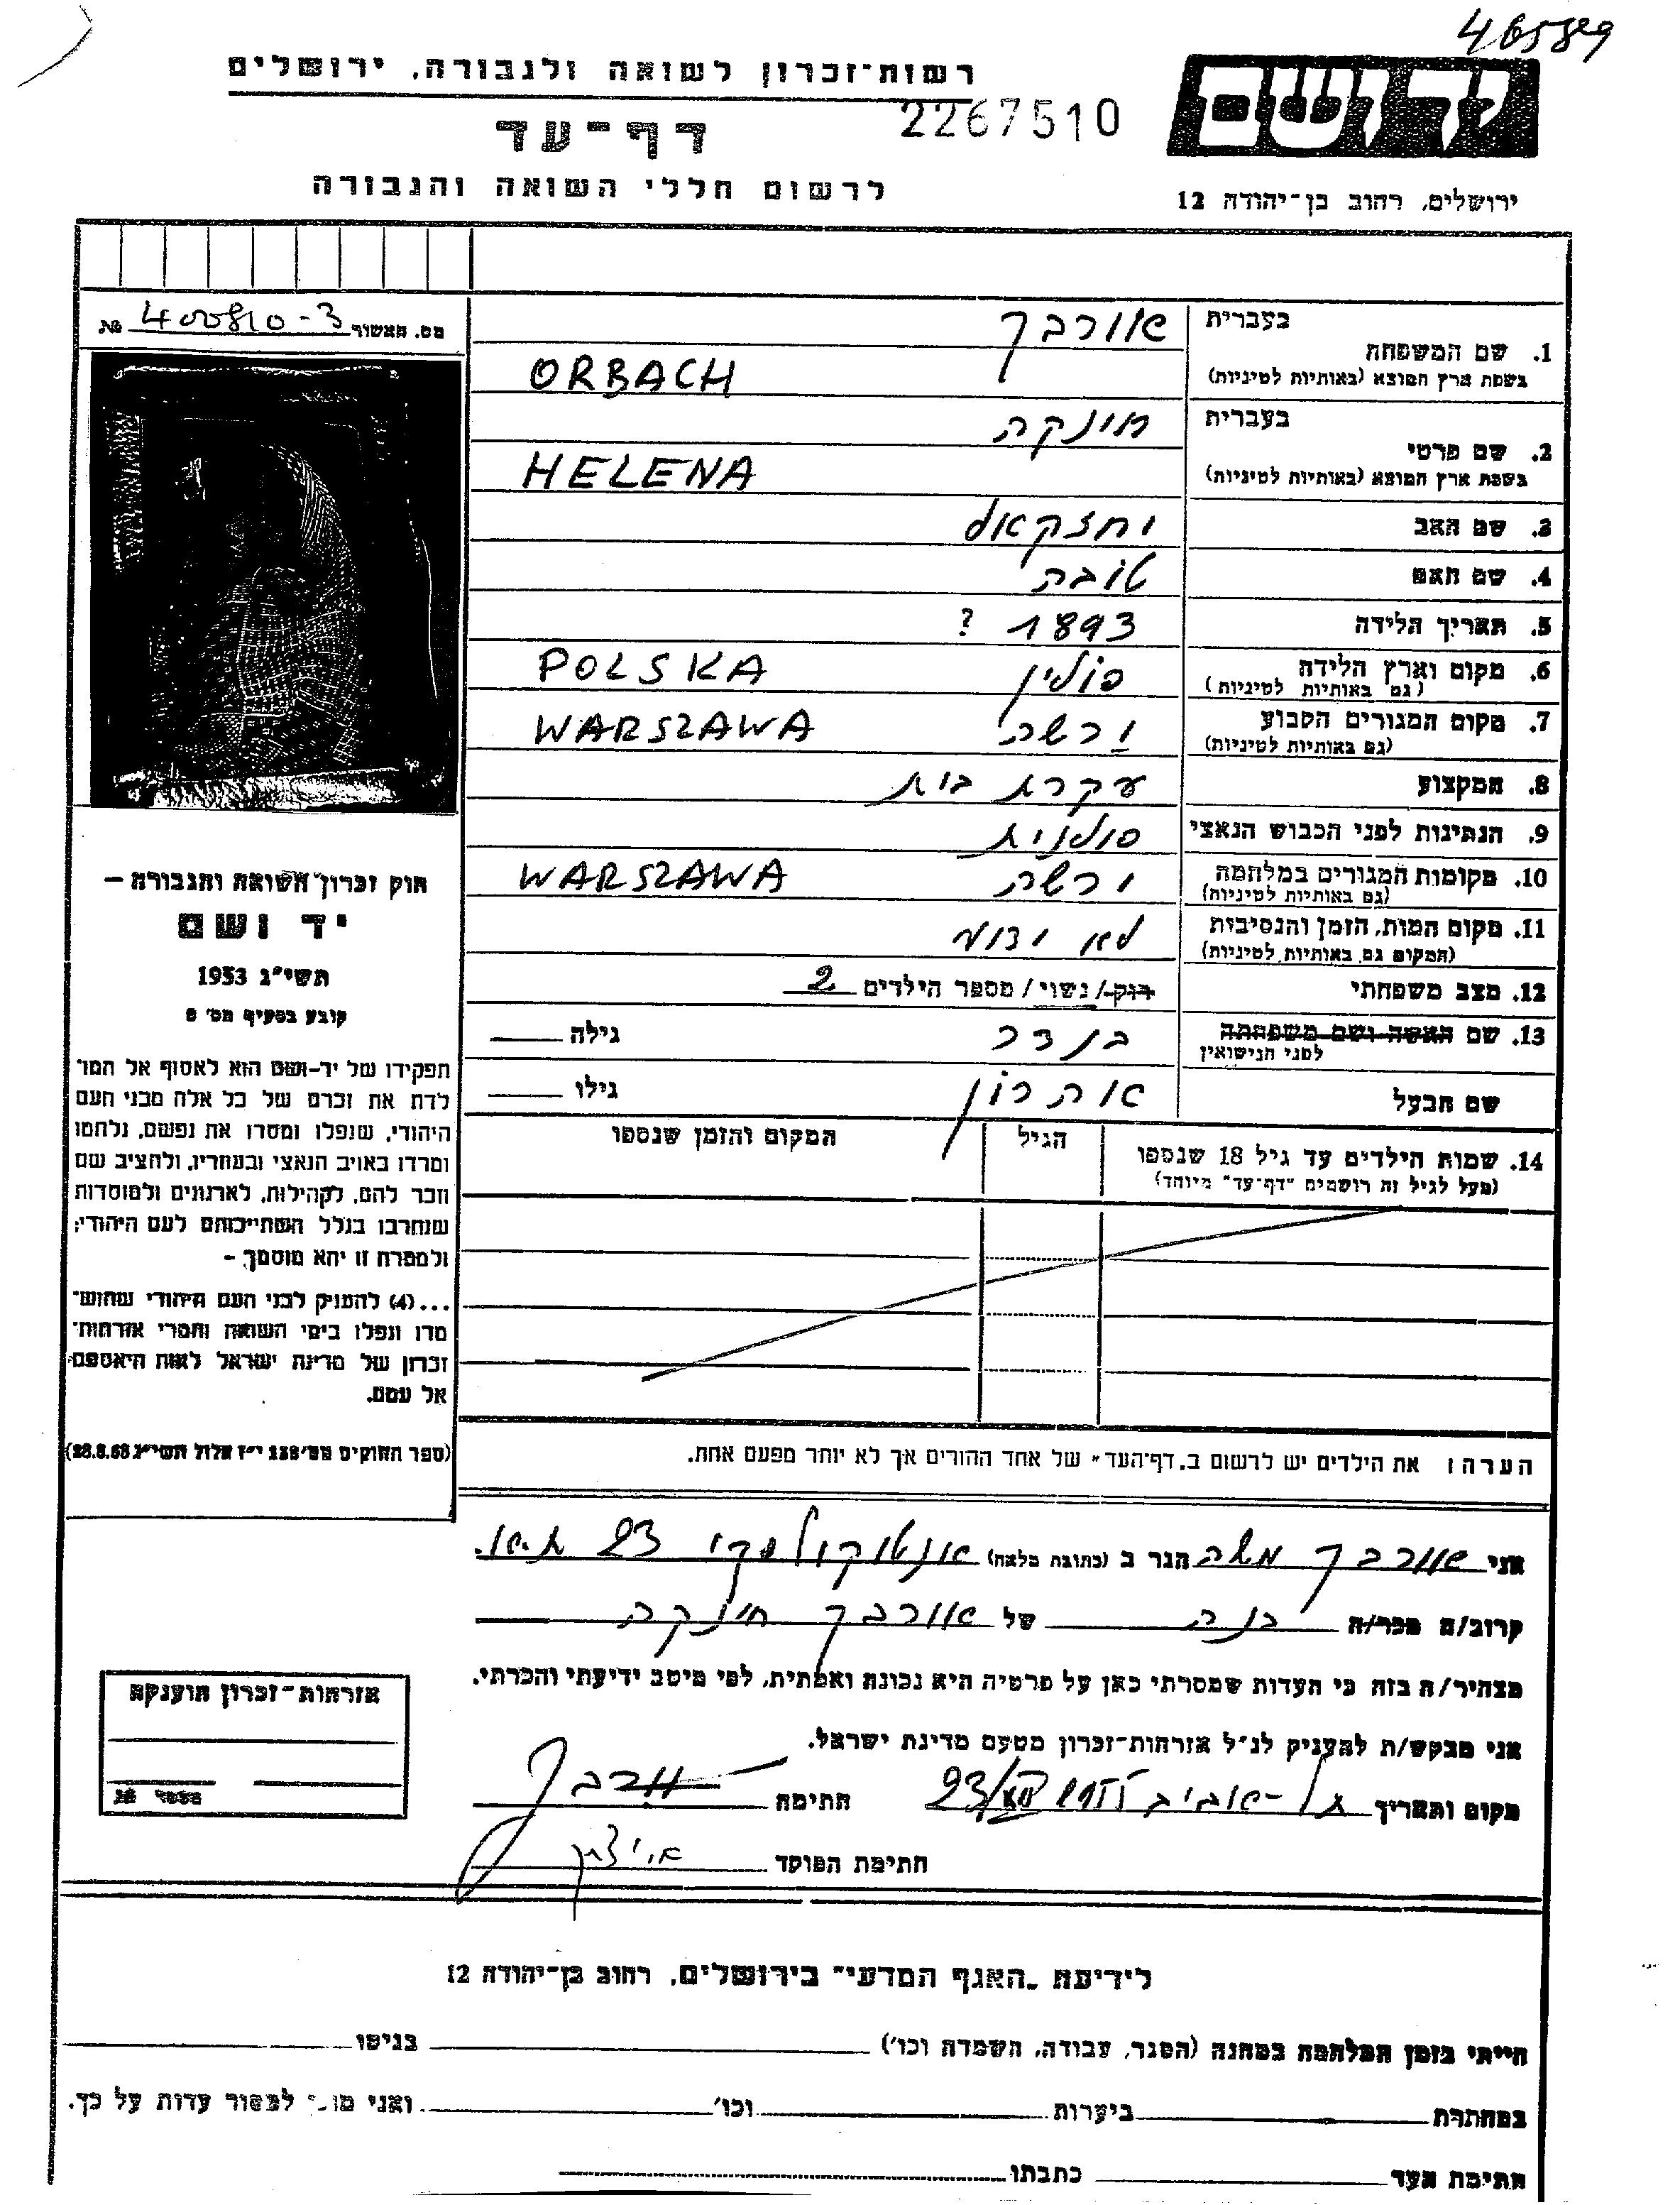 465889
רשות-זכרון לשואה ולגבורה, ירושלים
יד ושם
2267510
דף-עד
לרשום חללי השואה והגבורה
ירושלים, רחוב בן-יהודה 12
מס. האשור 400810-3
בעברית אורבך
1. שם המשפחה
בשפת ארץ המוצא (באותיות לטיניות) ORBACH
בעברית חינקה
2. שם פרטי
בשפת ארץ המוצא (באותיות לטיניות) HELENA
3. שם האב יחזקאל
4. שם האם טובה
5. תאריך הלידה 1893 ?
6. מקום וארץ הלידה פולין POLSKA
(גם באותיות לטיניות)
7. מקום המגורים הקבוע ורשה WARSZAWA
(גם באותיות לטיניות)
8. המקצוע עקרת בית
9. הנתינות לפני הכבוש הנאצי פולנית
10. מקומות המגורים במלחמה ורשה WARSZAWA
(גם באותיות לטיניות)
11. מקום המות, הזמן והנסיבות לא ידוע
(המקום גם באותיות לטיניות)
12. מצב משפחתי רוק/ נשוי/ מספר הילדים 2
13. שם האשה ושם משפחתה בנדר גילה
לפני הנישואין
שם הבעל אהרון גילו
14. שמות הילדים עד גיל 18 שנספו הגיל המקום והזמן שנספו
(מעל לגיל זה רושמים "דף-עד" מיוחד)
חוק זכרון השואה והגבורה –
יד ושם
תשי"ג 1953
קובע בסעיף מס' 2
תפקידו של יד-ושם הוא לאסוף אל המו־
לדת את זכרם של כל אלה מבני העם
היהודי, שנפלו ומסרו את נפשם, נלחמו
ומרדו באויב הנאצי ובעוזריו, ולהציב שם
וזכר להם, לקהילות, לארגונים ולמוסדות
שנחרבו בגלל השתייכותם לעם היהודי;
ולמטרה זו יהא מוסמך –
...(4) להעניק לבני העם היהודי שהוש־
מדו ונפלו בימי השואה והמרי אזרחות־
זכרון של מדינת ישראל לאות היאספם
אל עמם.
(ספר החוקים מס' 132 י"ז אלול תשי"ג 28.8.53)
הערה: את הילדים יש לרשום ב„דף-העד" של אחד ההורים אך לא יותר מפעם אחת.
אני אורבך משה הגר ב (כתובת מלאה) אנטוקולסקי 23 ת.א.
קרוב/ה מכר/ה בנה של אורבך חינקה
מצהיר/ה בזה כי העדות שמסרתי כאן על פרטיה היא נכונה ואמתית, לפי מיטב ידיעתי והכרתי.
אני מבקש/ת להעניק לנ"ל אזרחות-זכרון מטעם מדינת ישראל.
מקום ותאריך תל-אביב 23/ חתימה אורבך
חתימת הפוקד
אזרחות-זכרון הוענקה
לידיעת „האגף המדעי" בירושלים, רחוב בן-יהודה 12
הייתי בזמן המלחמה במחנה (הסגר, עבודה, השמדה וכו') בגיטו
במחתרת ביערות וכו' ואני מוכן למסור עדות על כך.
חתימת העד כתבתו